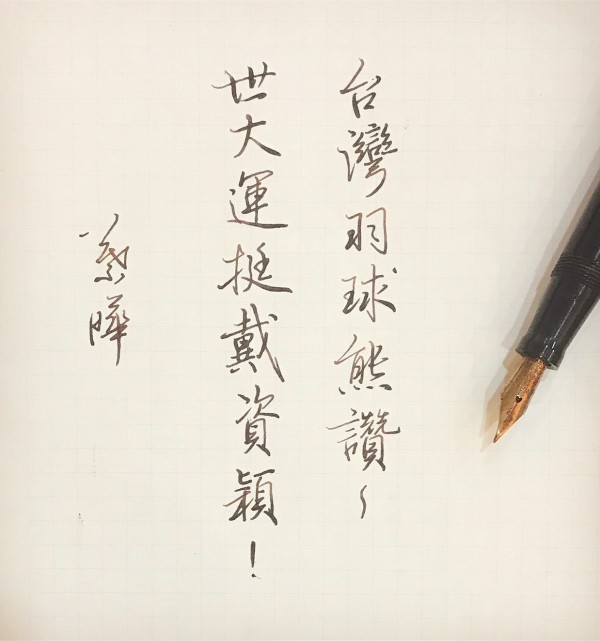 台灣羽球熊讚~
世大運挺戴資穎!
縈曄